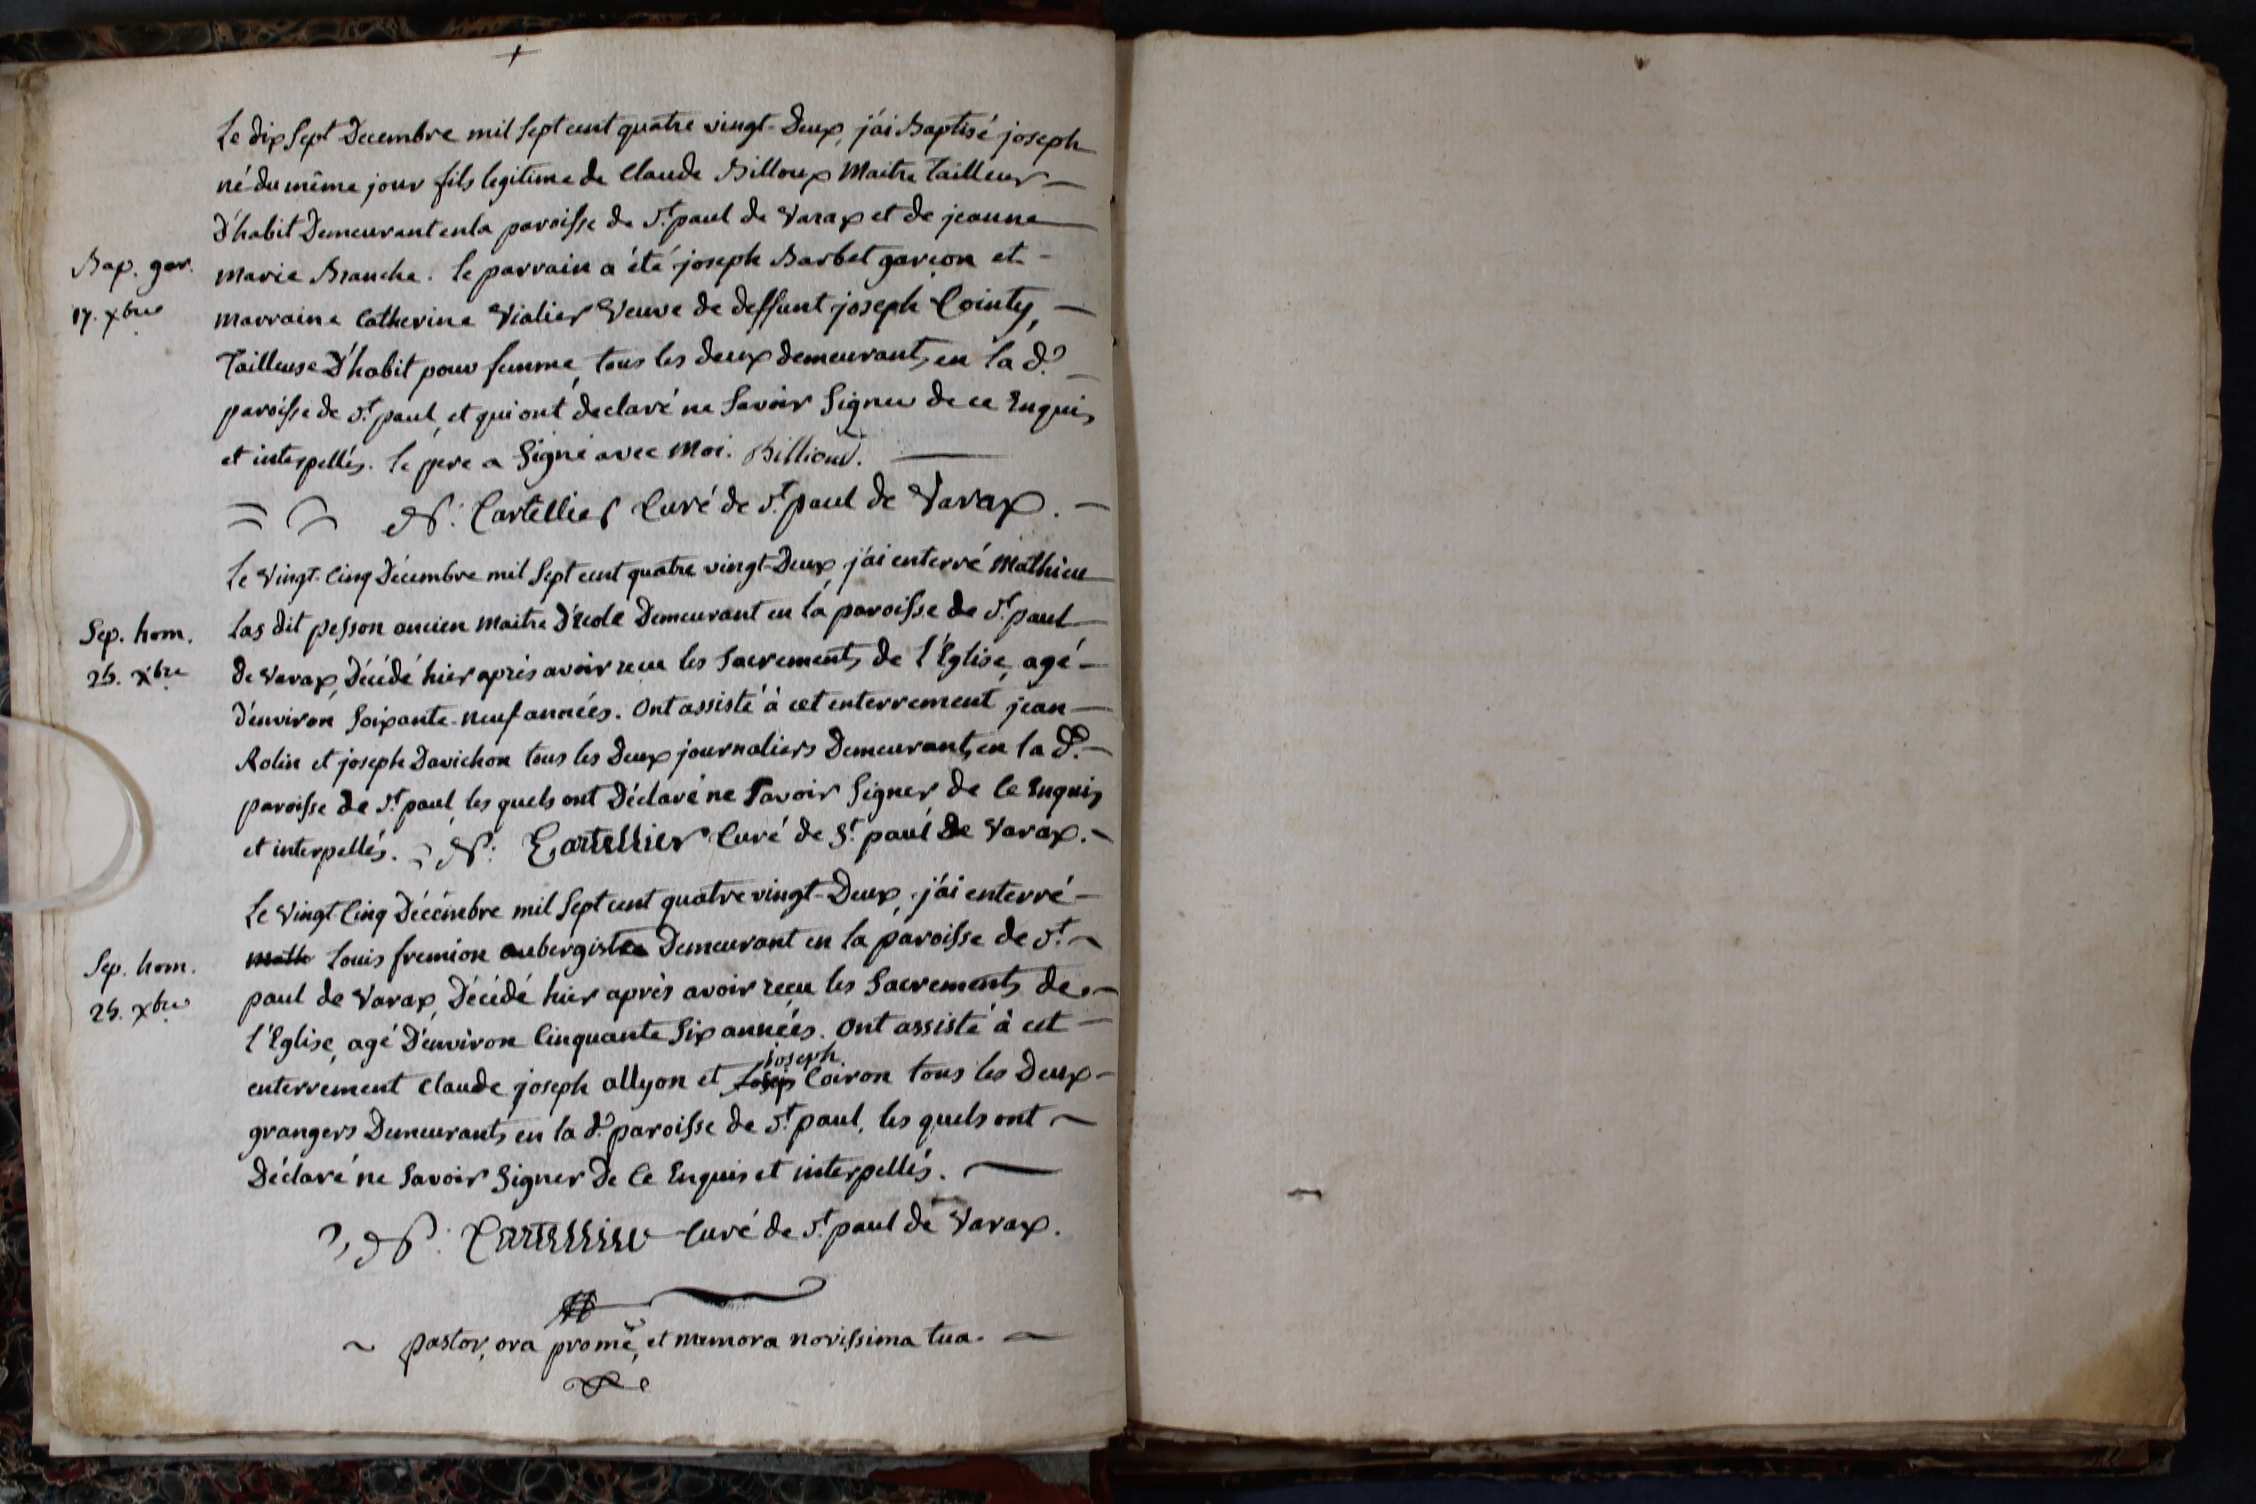 Le dix Sept Decembre mil Sept cent quatre vingt-Deux, j'ai Baptisé joseph
né du même jour fils legitime de Claude Billoux Maitre Tailleur
D'habit Demeurant en la paroisse de St. paul de Varax et de jeanne
Bap. gar. marie Branche. le parrain a été joseph Barbet garçon et
17. xbre marraine Catherine Vialier Veuve de deffunt joseph Cointy,
Tailleuse D'habit pour femme, tous les deux demeurants en la de.
paroisse de St. paul, et qui ont declaré ne Savoir Signer de ce Enquis
et interpellés. le pere a Signé avec Moi. Billioud.
Cartellier Curé de St. paul de Varax.
Le Vingt-Cinq Décembre mil Sept cent quatre vingt-Deux, j'ai enterré Mathieu
Sep. hom. Las dit pesson ancien maitre D'école Demeurant en la paroisse de St. paul
25. xbre de Varax, Décédé hier après avoir recu les Sacrements de l'Eglise, agé
D'environ Soixante-neuf années. Ont assisté à cet enterrement jean
Rolin et joseph Davichon tous les Deux journaliers Demeurants en la De.
paroisse de St. paul, les quels ont Déclaré ne Savoir Signer de Ce Enquis
et interpellés. Cartellier Curé de St. paul de Varax.
Le Vingt-Cinq Décémbre mil Sept cent quatre vingt-Deux, j'ai enterré
Math Louis fremion aubergiste Demeurant en la paroisse de St.
Sep. hom. paul de Varax, Décédé hier après avoir reçu les Sacrements de
25. xbre l'Eglise, agé D'environ Cinquante Six années. Ont assisté à cet
joseph
enterrement Claude joseph allyon et Coiron tous les Deux
grangers Demeurants en la de. paroisse de St. paul, les quels ont
Déclaré ne Savoir Signer De Ce Enquis et interpellés.
Cartellier Curé de St. paul de Varax.
pastor, ora pro me, et memora novissima tua.